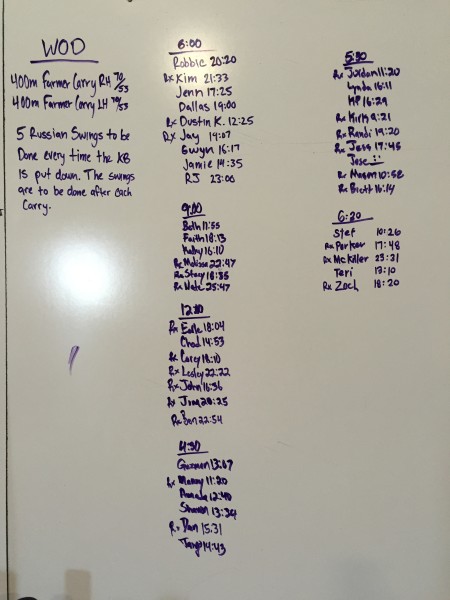 WOD
400m Farmer Carry RH 70/53
400m Farmer Carry LH 70/53
5 Russian Swings to be
Done every time the KB
is put down. The swings
are to be done after each
Carry.
6:00
Robbie 20:20
Rx Kim 21:33
Jenn 17:25
Dallas 19:00
Rx Dustin K. 12:25
Rx Jay 19:07
Gwyn 16:17
Jamie 14:35
RJ 23:00
9:00
Beth 11:55
Faith 18:13
Kelby 16:10
Rx Melissa 22:47
Rx Stacy 18:35
Rx Nate 25:47
12:00
Rx Earle 18:04
Chad 14:53
Rx Corey 18:10
Rx Lesley 22:22
Rx John 16:36
Rx 20:25
Rx Ben 22:54
4:30
Guzman 13:07
Rx Manny 11:20
12:40
Sharon 13:34
Rx Dan 15:31
14:43
5:30
Rx Jordan 11:20
Lynda 16:11
MP 16:29
Rx Kirk 9:21
Rx Randi 19:20
Rx Jess 17:45
Jose
Rx Mason 10:58
Rx Brett 16:14
6:30
Stef 10:26
Rx Parker 17:48
Rx McKiller 23:31
Teri 13:10
Rx Zach 18:20